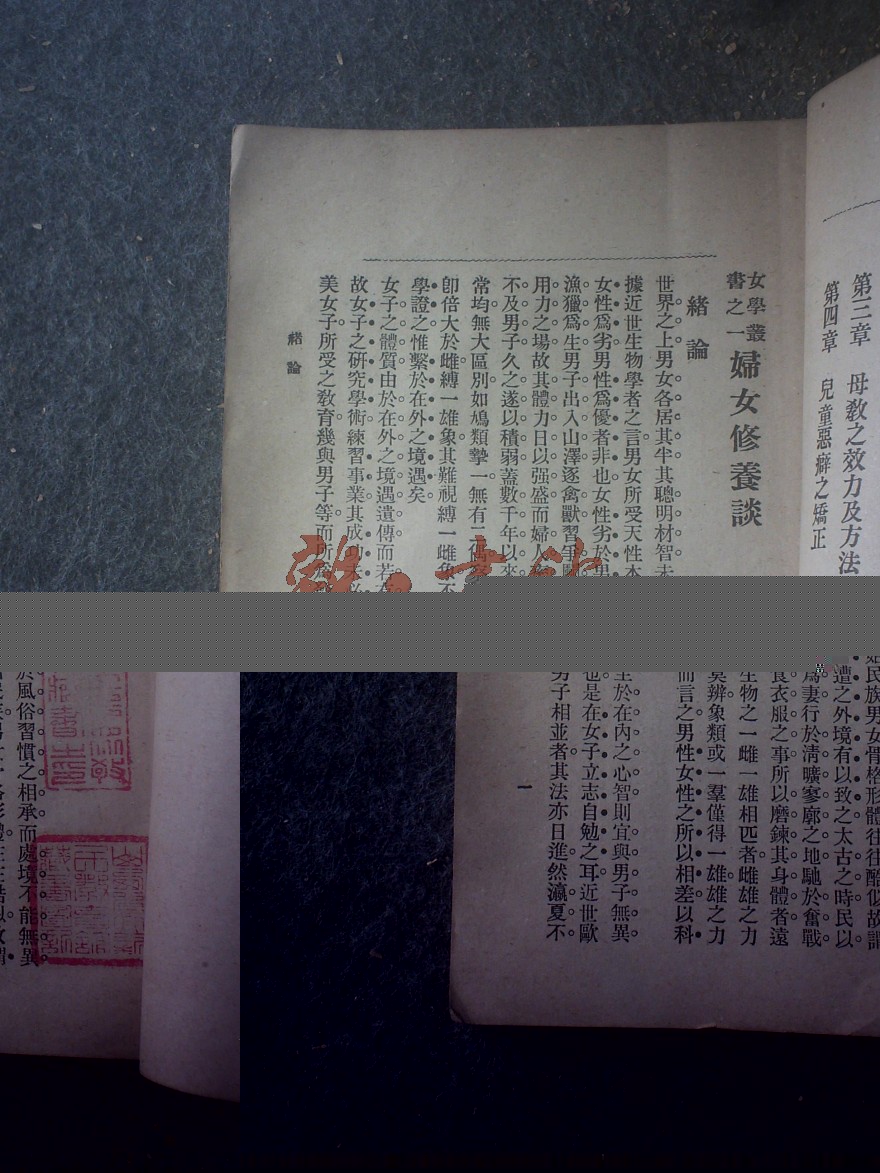 第三章　母教之效力及方法
第四章　兒童惡癖之矯正
女學叢書之一　婦女修養談
緒論
世界之上男女各居其半其聰明材智未
據近世生物學者之言男女所受天性本
女性爲劣男性爲優者非也女性劣於男
漁獵爲生男子出入山澤逐禽獸習爭鬭
用力之場故其體力日以强盛而婦人
不及男子久之遂以積弱蓋數千年以來
常均無大區別如鳩類摯一無有二偶
卽倍大於雌縛一雄象其難視縛一雌象不
學證之惟繫於在外之境遇矣
女子之體質由於在外之境遇遺傳而若
故女子之研究學術練習事業其成功未必
美女子所受之敎育幾與男子等而所
緒論
民族男女骨格形體往往酷似故謂
遭之外境有以致之太古之時民以
爲妻行於淸曠寥廓之地馳於奮戰
食衣服之事所以磨鍊其身體者遠
生物之一雌一雄相匹者雌雄之力
莫辨象類或一羣僅得一雄雄之力
而言之男性女性之所以相差以科
於在內之心智則宜與男子無異
也是在女子立志自勉之耳近世歐
男子相並者其法亦日進然瀛夏不
一
於風俗習慣之相承而處境不能無異